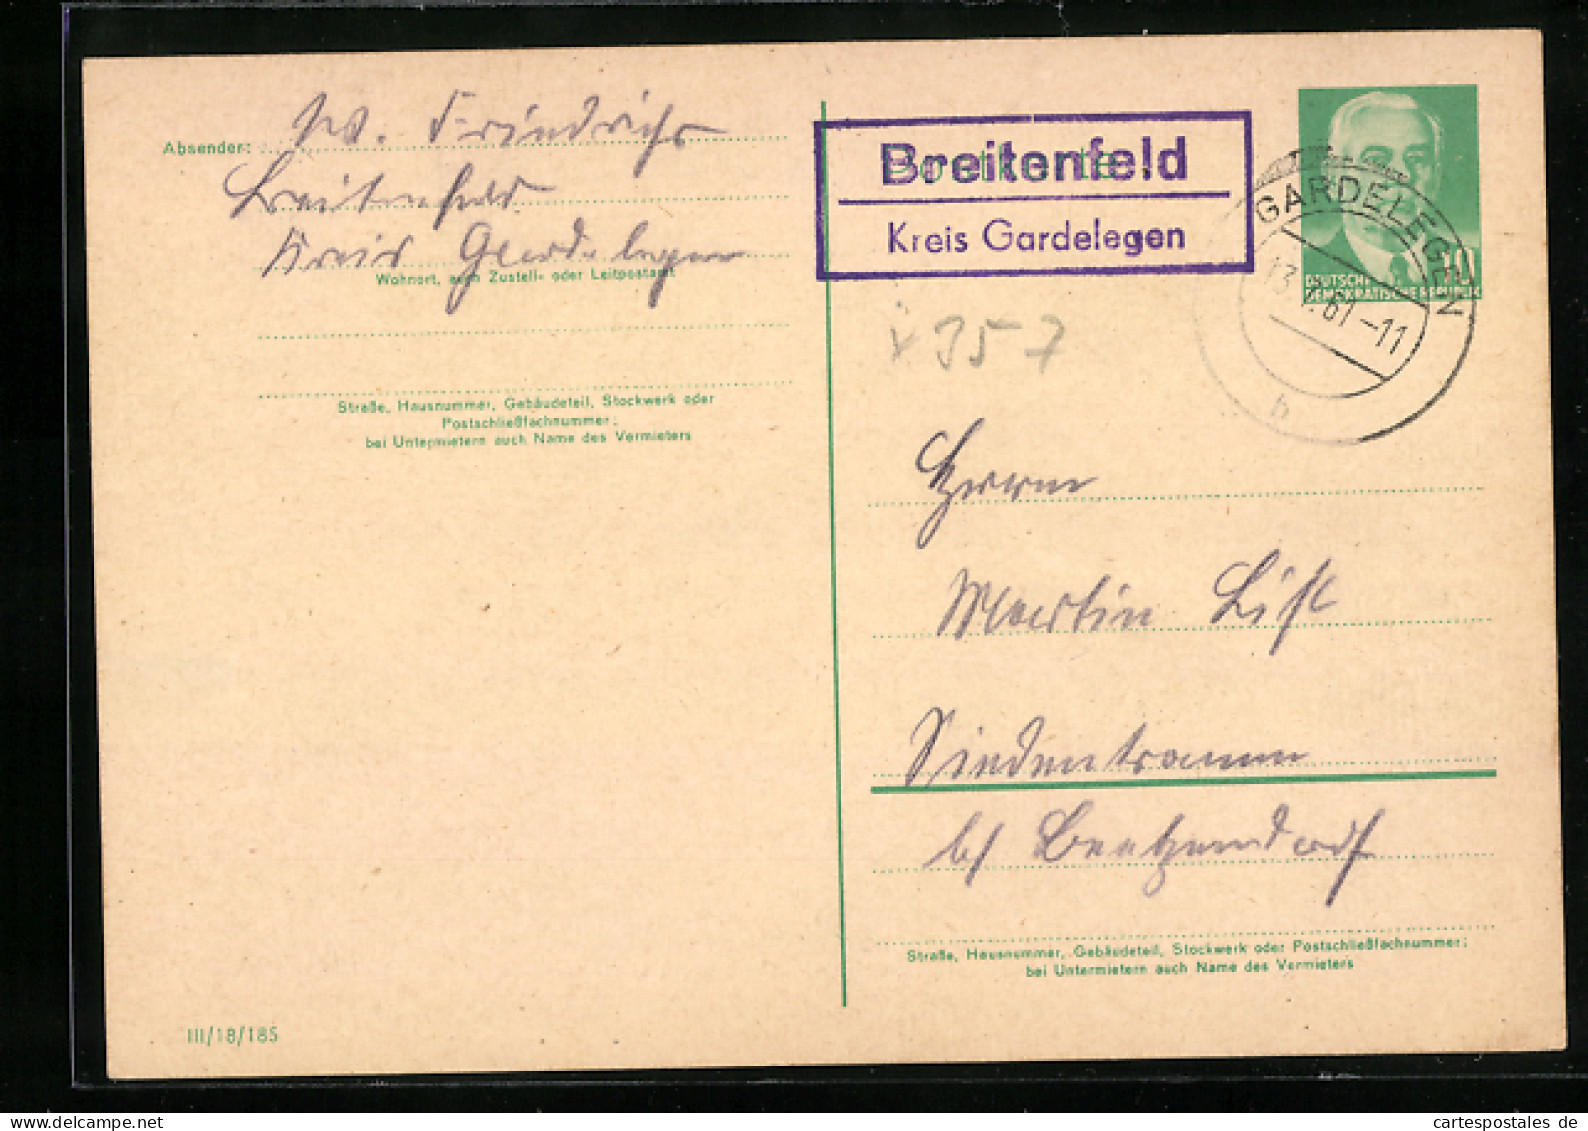 Absender: W. Friedrichs
Breitenfeld
Kreis Gardelegen
Wohnort, auch Zustell- oder Leitpostamt
Straße, Hausnummer, Gebäudeteil, Stockwerk oder
Postschließfachnummer;
bei Untermietern auch Name des Vermieters
III/18/185
Postkarte
Breitenfeld
Kreis Gardelegen
10
DEUTSCHE
DEMOKRATISCHE REPUBLIK
GARDELEGEN
13. 61-11
b
x 357
Herrn
Martin List
Siedentramm
b/ Beetzendorf
Straße, Hausnummer, Gebäudeteil, Stockwerk oder Postschließfachnummer;
bei Untermietern auch Name des Vermieters
cartespostales de